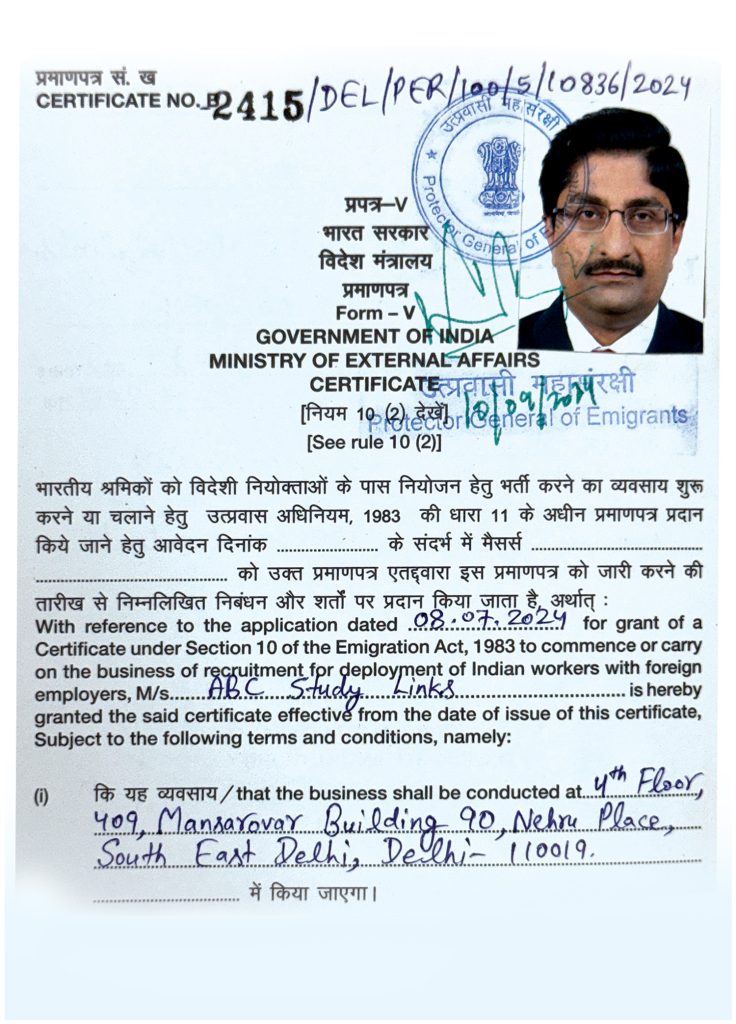 प्रमाणपत्र सं. ख
CERTIFICATE NO. B2415/DEL/PER/100/5/10836/2024
उत्प्रवासी महासंरक्षी
Protector General of E
प्रपत्र–V
भारत सरकार
विदेश मंत्रालय
प्रमाणपत्र
Form – V
GOVERNMENT OF INDIA
MINISTRY OF EXTERNAL AFFAIRS
CERTIFICATE
उत्प्रवासी महासंरक्षी
[नियम 10 (2) देखें]
Protector General of Emigrants
[See rule 10 (2)]
भारतीय श्रमिकों को विदेशी नियोक्ताओं के पास नियोजन हेतु भर्ती करने का व्यवसाय शुरू
करने या चलाने हेतु उत्प्रवास अधिनियम, 1983 की धारा 11 के अधीन प्रमाणपत्र प्रदान
किये जाने हेतु आवेदन दिनांक ...................... के संदर्भ में मैसर्स .....................................
.......................................... को उक्त प्रमाणपत्र एतद्द्वारा इस प्रमाणपत्र को जारी करने की
तारीख से निम्नलिखित निबंधन और शर्तों पर प्रदान किया जाता है, अर्थात् :
With reference to the application dated 08.07.2024 for grant of a
Certificate under Section 10 of the Emigration Act, 1983 to commence or carry
on the business of recruitment for deployment of Indian workers with foreign
employers, M/s...... ABC Study Links ...................................... is hereby
granted the said certificate effective from the date of issue of this certificate,
Subject to the following terms and conditions, namely:
(i) कि यह व्यवसाय / that the business shall be conducted at 4th Floor,
409, Mansarovar Building 90, Nehru Place,
South East Delhi, Delhi- 110019.
................................ में किया जाएगा।